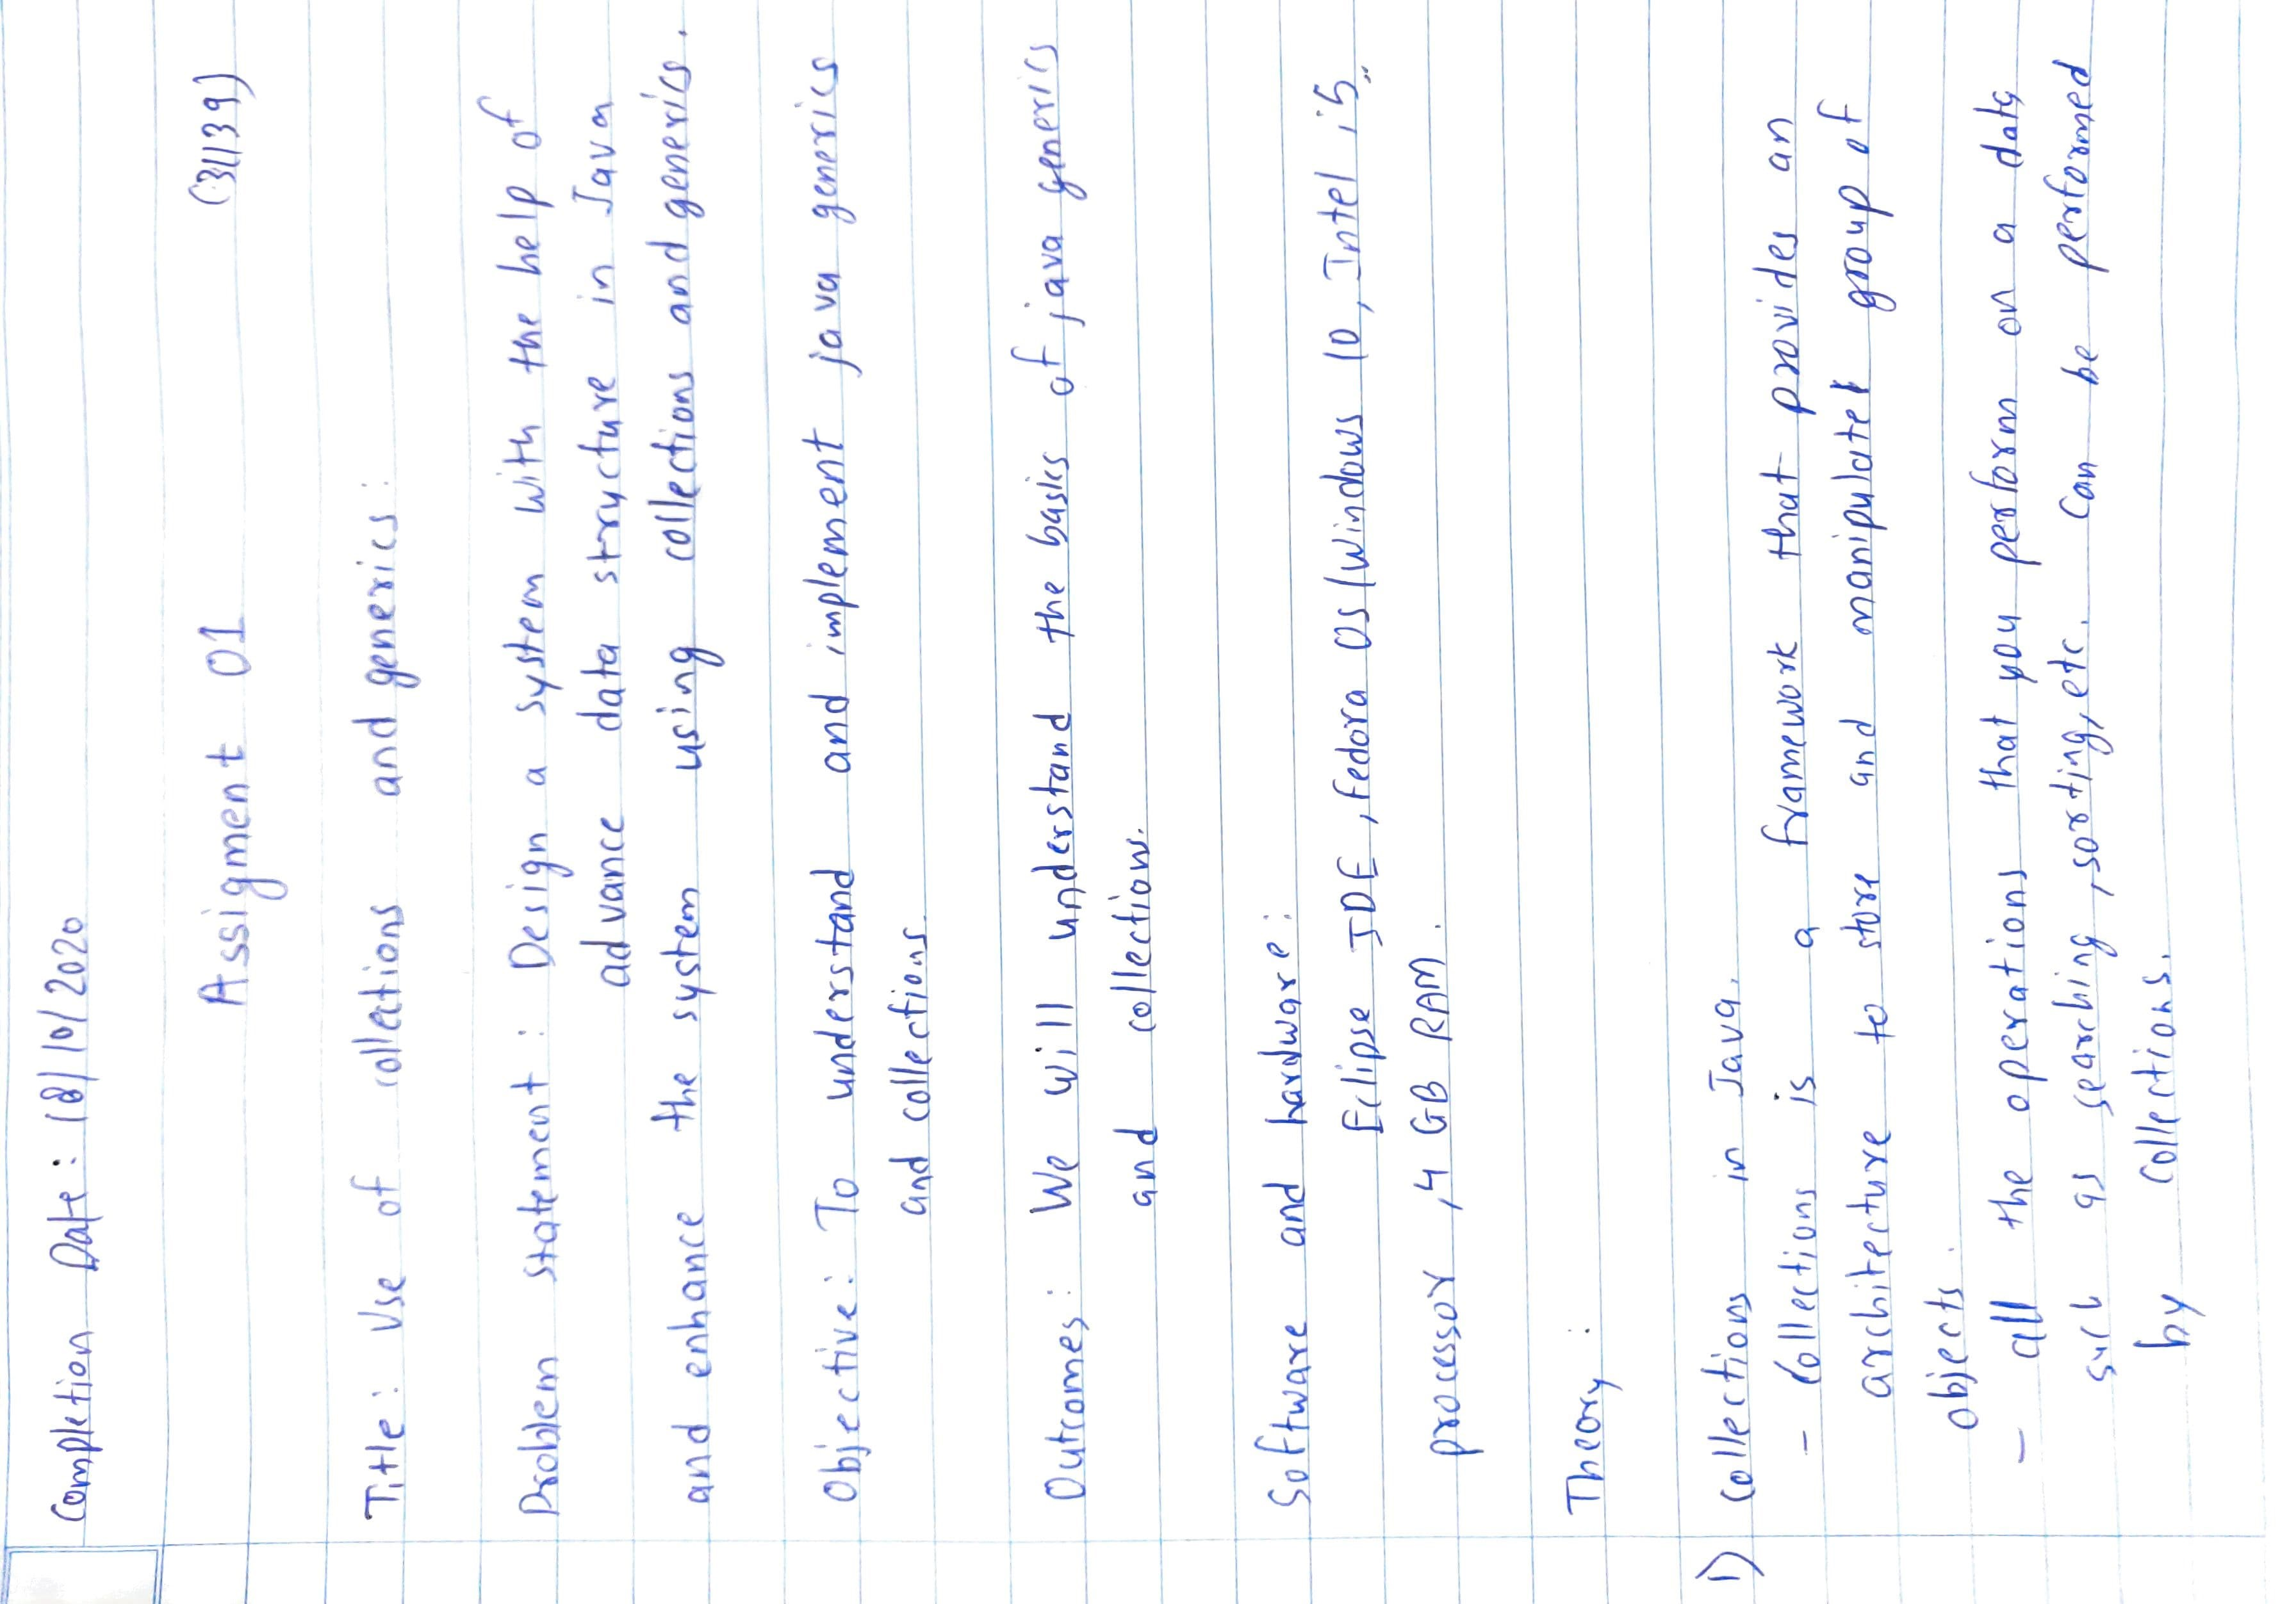 Completion Date: 18/10/2020
Assigment 01 (31139)
Title: Use of collections and generics:
Problem statement: Design a system with the help of
advance data structure in Java
and enhance the system using collections and generics.
Objective: To understand and implement java generics
and collections
Outcomes: We will understand the basics of java generics
and collections.
Software and hardware:
Eclipse IDE, Fedora OS/Windows 10, Intel i5
processor, 4 GB RAM.
Theory:
1) Collections in Java.
- Collections is a framework that provides an
architecture to store and manipulate group of
objects.
- all the operations that you perform on a data
such as searching, sorting, etc. can be performed
by collections.